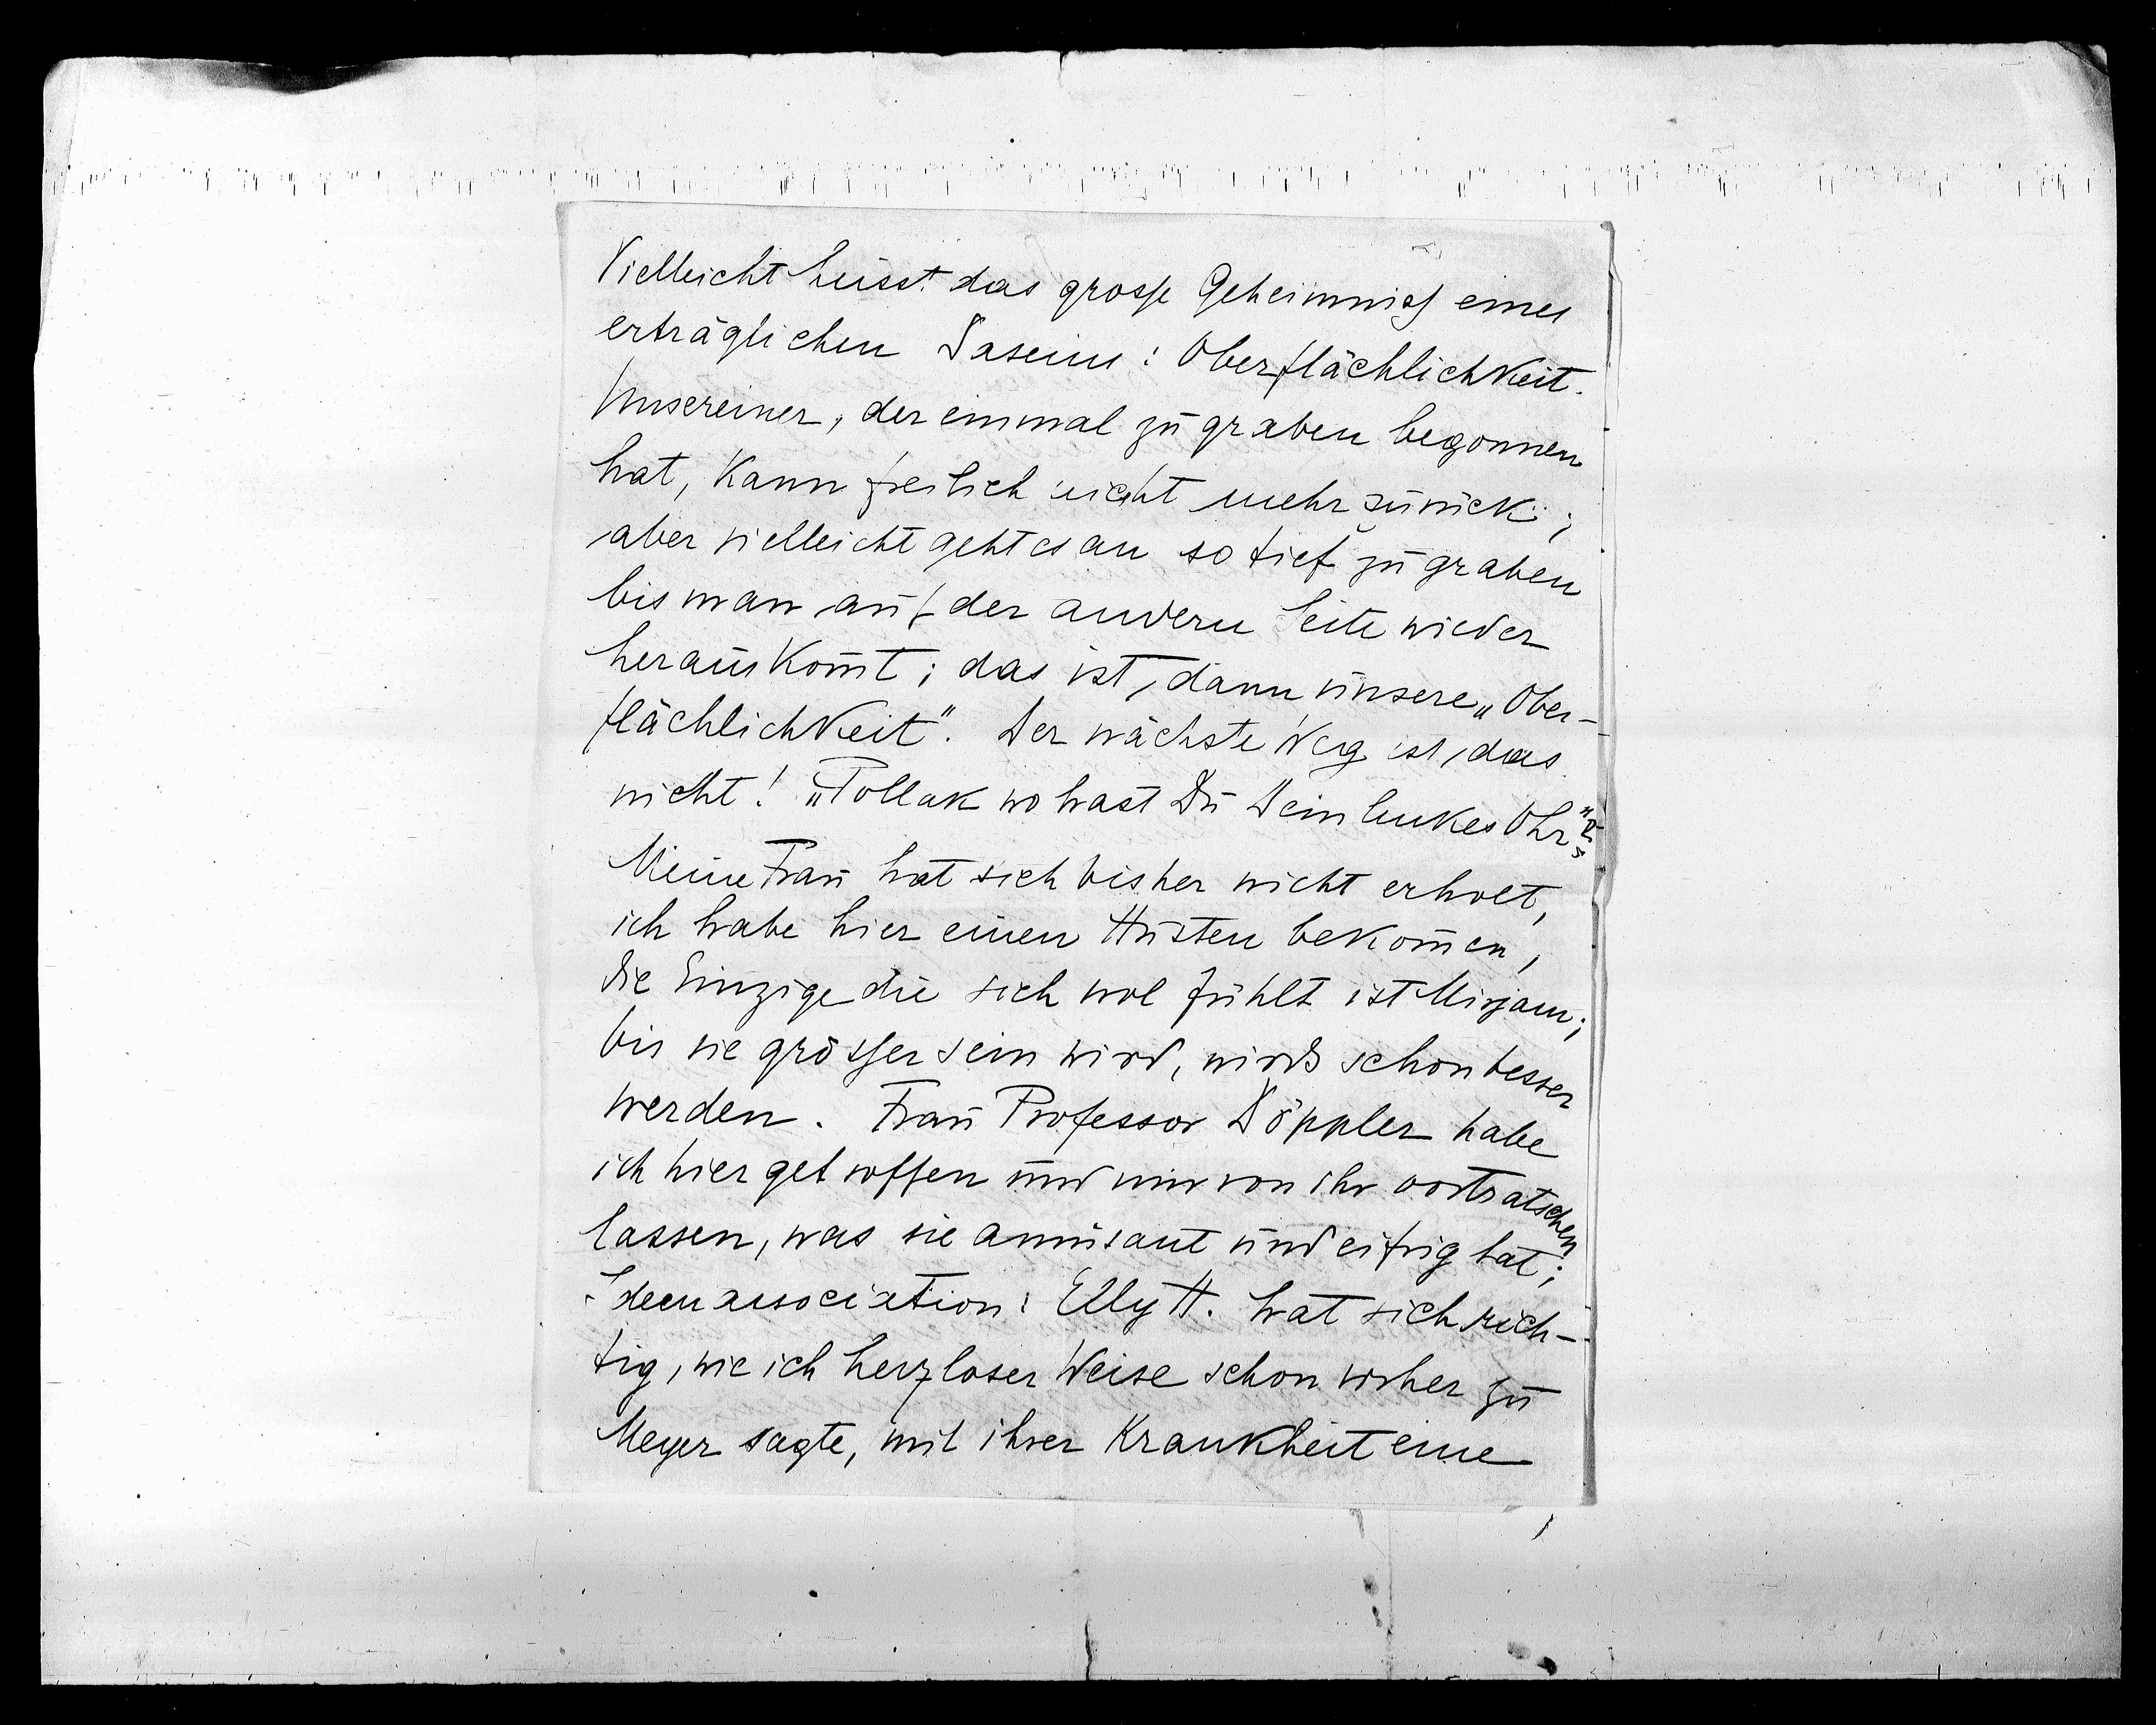 Vielleicht heisst das grosse Geheimniss eines
erträglichen Daseins: Oberflächlichkeit.
Unsereiner, der einmal zu graben begonnen
hat, kann freilich nicht mehr zurück;
aber vielleicht geht es an so tief zu graben
bis man auf der andern Seite wieder
herauskom̄t; das ist dann unsere „Ober-
flächlichkeit“. Der nächste Weg ist das
nicht! „Pollak wo hast Du Dein linkes Ohr“?
Meine Frau hat sich bisher nicht erholt,
ich habe hier einen Husten bekom̄en,
die Einzige die sich wol fühlt ist Mirjam;
bis sie grösser sein wird, wirds schon besser
werden. Frau Professor Döppler habe
ich hier getroffen und mir von ihr vortratschen
lassen, was sie amüsant und eifrig tat;
Ideenassociation: Elly H. hat sich rich-
tig, wie ich herzloser Weise schon vorher zu
Meyer sagte, mit ihrer Krankheit eine